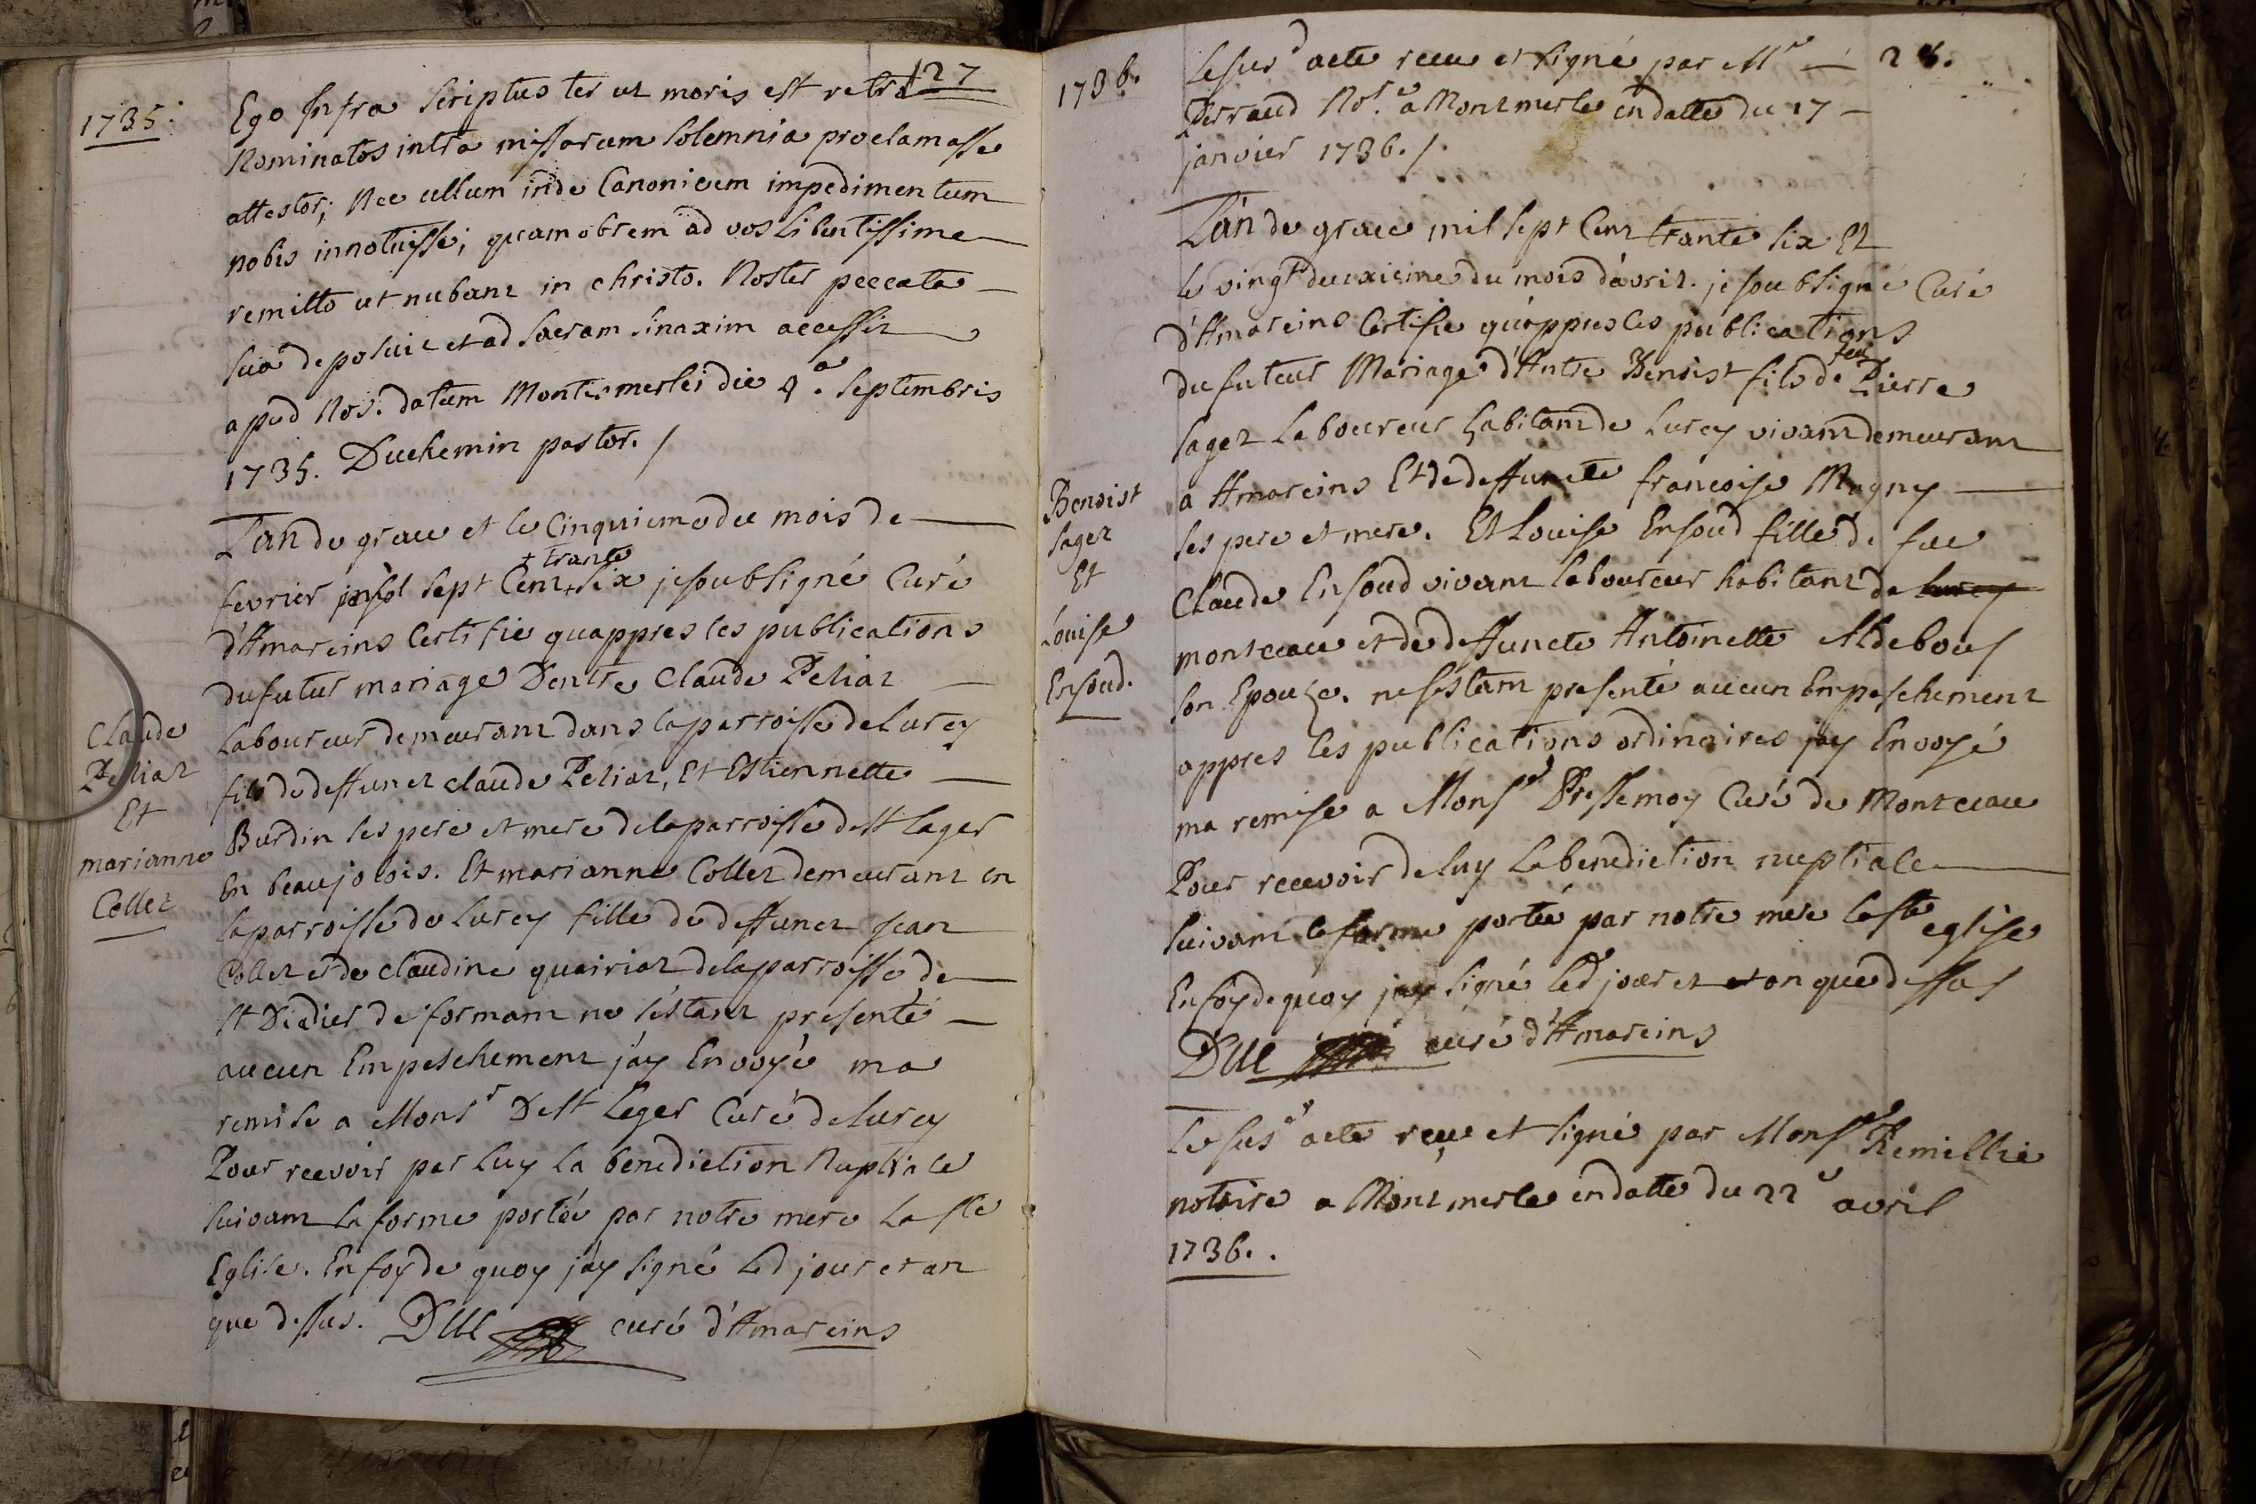 127
1735.
Ego Infra scriptus ter ut moris est retro
Nominatos intra missarum solemnia proclamasse
attestor; Nec ullum inde Canonicum impedimentum
nobis innotuisse; quamobrem ad vos libentissime
remitto ut nubant in christo. Noster peccata
sua deposuit et ad sacram sinaxim accessit
apud Nos. datum Montismerlei die 4.a septembris
1735. Duchemin pastor. /
L'an de grace et le Cinquieme du mois de
+ trante
fevrier mil sept Cent + six je soubsigné Curé
d'Amareins Certifie quappres les publications
du futur mariage Dentre Claude Peliat
Laboureur demeurant dans la parroisse de Lurcy
fils de deffunct claude Peliat, Et Estiennette
Burdin ses pere et mere de la parroisse de St Lager
En beaujolois. Et marianne Collet demeurant en
la parroisse de Lurcy fille de deffunct jean
Collet et de claudine quairiat de la parroisse de
St Didier de formam ne s'éstant presenté
aucun Empeschement j'ay Envoyé ma
remise a Monsr De St Leger Curé de Lurcy
Pour recevoir par Luy La benediction Nuptiale
suivant La forme portée par notre mere La ste
Eglise. En foy de quoy j'ay signé Led jour et an
que dessus. DUC curé d'Amareins
Claude
Peliat
Et
marianne
Collet
1736.
28.
Le susd acte receu et signé par Mr
Perraud Nore a Montmerle en datte du 17
janvier 1736. /.
L'an de grace mil sept Cent trante six Et
le vingt deuxieme du mois d'avril. je soubsigné Curé
d'Amareins Certifie qu'appres les publications
du futeur Mariage d'Antre Benoist fils de feu Pierre
Saget Laboureur habitant de Lurcy vivant demeurant
a Amareins Et de deffuncte francoise Magny
ses pere et mere. Et Louise Ensoud fille de fue
Claude Ensoud vivant laboureur habitant de lurcy
montceau et de deffuncte Antoinette
son Epouze. ne s'estant presenté aucun Empeschement
appres les publications ordinaires jay Envoyé
ma remise a Monsr Pressemoy Curé de Montceau
Pour recevoir de luy La benediction nuptiale
suivant la forme portée par notre mere la ste eglise
En foy de quoy jay signé led jour et an que dessus
DUC curé d'Amareins
Benoist
Saget
Et
Louise
Ensoud.
Le susd acte reçue et signé par Monsr Remillie
notaire a Montmerle en datte du 22e avril
1736..